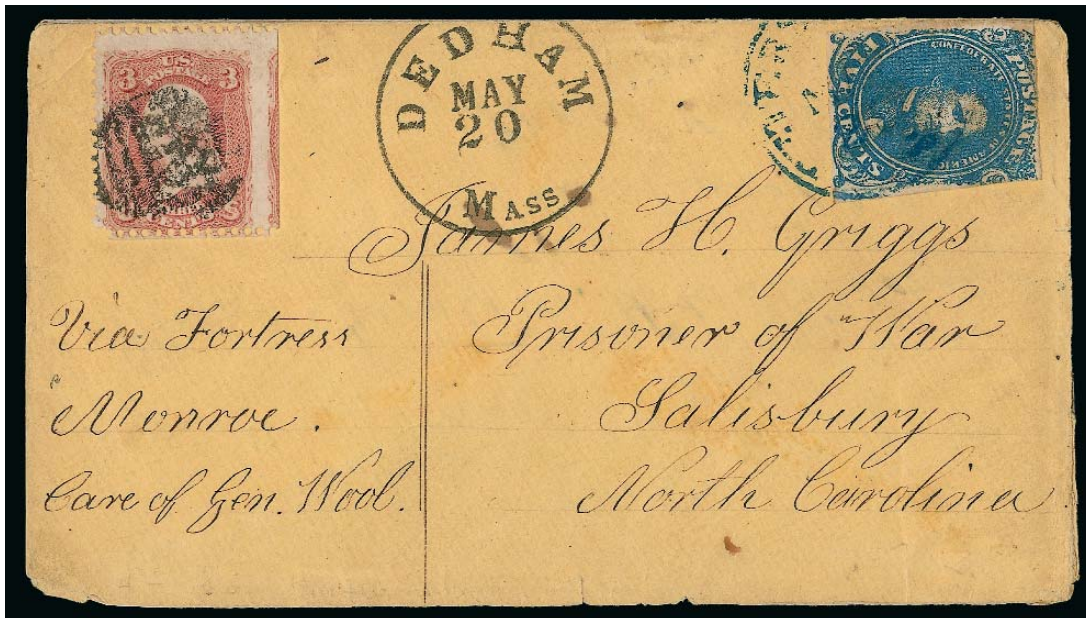 U.S.
POSTAGE
3 3
CENTS
DEDHAM
MAY
20
MASS
FIVE CENTS
CONFEDERATE STATES OF AMERICA
POSTAGE
James H. Griggs
Prisoner of War
Salisbury
North Carolina
Via Fortress
Monroe.
Care of Gen. Wool.